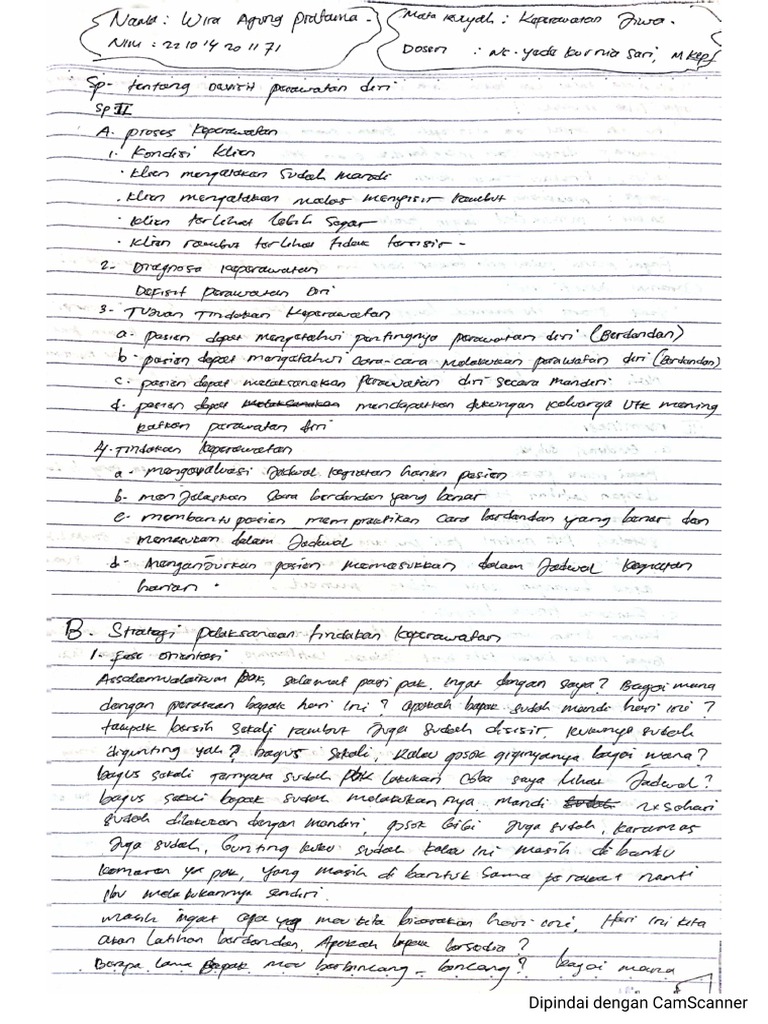 Nama : Wira Agung Pratama.
Nim : 2210142011 71
Mata kuyah : Keperawatan Jiwa.
Dosen : Ns. yade kurnia Sari, M Kep
Sp- tentang Devisit perawatan diri
Sp II
A. proses Keperawatan
1. Kondisi Klien
. klien mengatakan sudah mandi
. klien mengatakan malas menyisir rambut
. klien terlihat lebih segar
. klien rambut terlihat tidak tersisir -
2. Diagnosa Keperawatan
Defisit perawatan Diri
3. Tujuan Tindakan Keperawatan
a. pasien dapat mengetahui pentingnya perawatan diri (Berdandan)
b. pasien dapat mengetahui cara-cara melakukan perawatan diri (Berdandan)
c. pasien dapat melaksanakan Perawatan diri secara mandiri
d. pasien dapat melaksanakan mendapatkan dukungan keluarga utk mening
katkan perawatan diri
4. Tindakan Keperawatan
a. mengevaluasi Jadwal kegiatan harian pasien
b. menjelaskan Cara berdandan yang benar
c. membantu pasien mempraktikan cara berdandan yang benar dan
memasukan dalam Jadwal
d. Menganjurkan pasien memasukkan dalam Jadwal kegiatan
harian .
B. Strategi pelaksanaan tindakan Keperawatan
1. fase orientasi
Assalamualaikum pak, selamat pagi pak. Ingat dengan saya? Bagai mana
dengan perasaan bapak hari ini? apakah bapak sudah mandi hari ini?
tampak bersih sekali rambut Juga sudah disisir, kukunya sudah
digunting yah? bagus sekali, kalau gosok giginyanya bagai mana?
bagus sekali ternyata sudah pak lakukan coba saya lihat Jadwal?
bagus sekali bapak sudah melakukannya mandi sudah 2x sehari
sudah dilakukan dengan mandiri, gosok Gigi Juga sudah, Keramas
Juga sudah, Gunting kuku sudah kalau ini masih di bantu
kemaren ya pak, yang masih di bantuk sama perawat nanti
ibu melakukannya sendiri.
masih ingat apa yag mau kita bicarakan hari ini, Hari ini kita
akan latihan berdandan. Apakah bapak bersedia?
Berapa lama Bapak mau berbincang - bincang? bagai mana
Dipindai dengan CamScanner